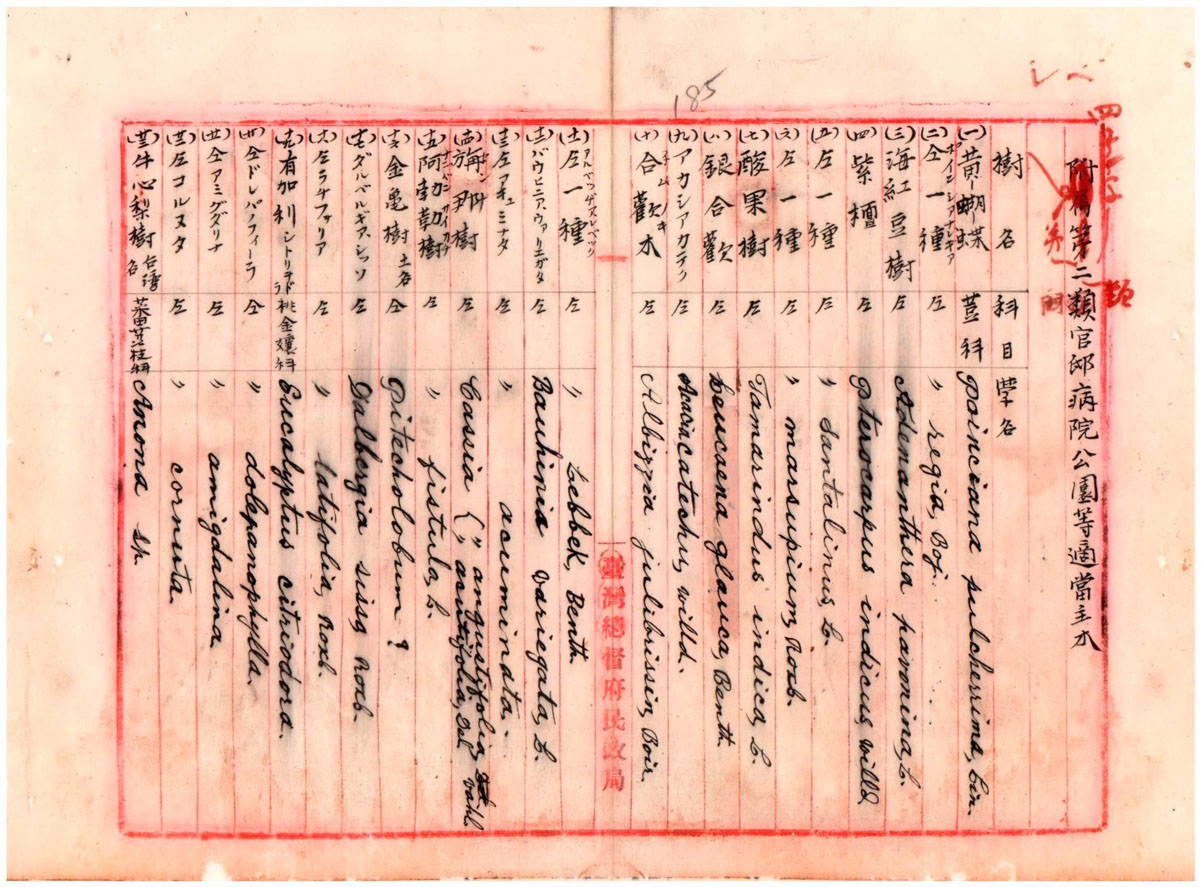 185
附属第二類官邸病院公園等適當主木
樹名 科目 学名
(一) 黄蝴蝶 荳科 Poinciana pulcherrima, Lin.
(二) 仝一種 左 〃 regia, Boj.
(三) 海紅豆樹 左 Adenanthera pavonina, L.
(四) 紫檀 左 Pterocarpus indicus, Willd
(五) 左一種 左 〃 santalinus, L.
(六) 左一種 左 〃 marsupium, Roxb.
(七) 酸果樹 左 Tamarindus indica, L.
(八) 銀合歡 左 Leucaena glauca, Benth.
(九) アカシアカテク 左 Acacia catechu, Willd.
(十) 合歡木 子ムノキ 左 Albizzia julibissin, Boir.
臺灣總督府民政局
(十一) 左一種 左 〃 Lebbek, Benth.
(十二) バウヒニア、ヴァリエガタ 左 Bauhinia variegata, L.
(十三) 左アキュミナタ 左 〃 acuminata.
(十四) 旃那樹 左 Cassia { 〃 angustifolia, Vahl. 〃 acutifolia, Del.
(十五) 阿勃勒樹 左 〃 fistula, L.
(十六) 金亀樹 土名 仝 Pitecholobum ?
(十七) ダルベルギア、シッソ 左 Dalbergia sisso, Roxb.
(十八) 左ラチフォリア 左 〃 latifolia, Roxb.
(十九) 有加利シトリヲドラ 桃金孃科 Eucalyptus citriodora.
(廿) 仝ドレパノフィーラ 仝 〃 dolepanophylla.
(廿一) 仝アミグダリナ 左 〃 amigdalina.
(廿二) 左コルヌタ 左 〃 cornuta.
(廿三) 牛心梨樹 台湾名 蕃荔枝科 Anona sp.